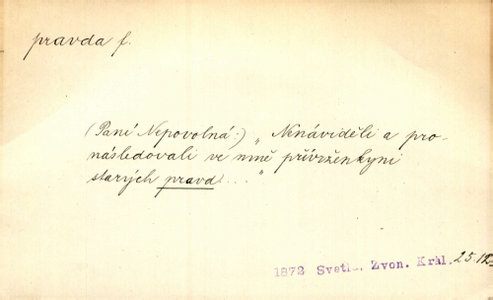 pravda f.
(Paní Nepovolná:) „Nenáviděli a pro-
následovali ve mně přívrženkyni
starých pravd..."
1872 Světlá. Zvon. Král. 25.